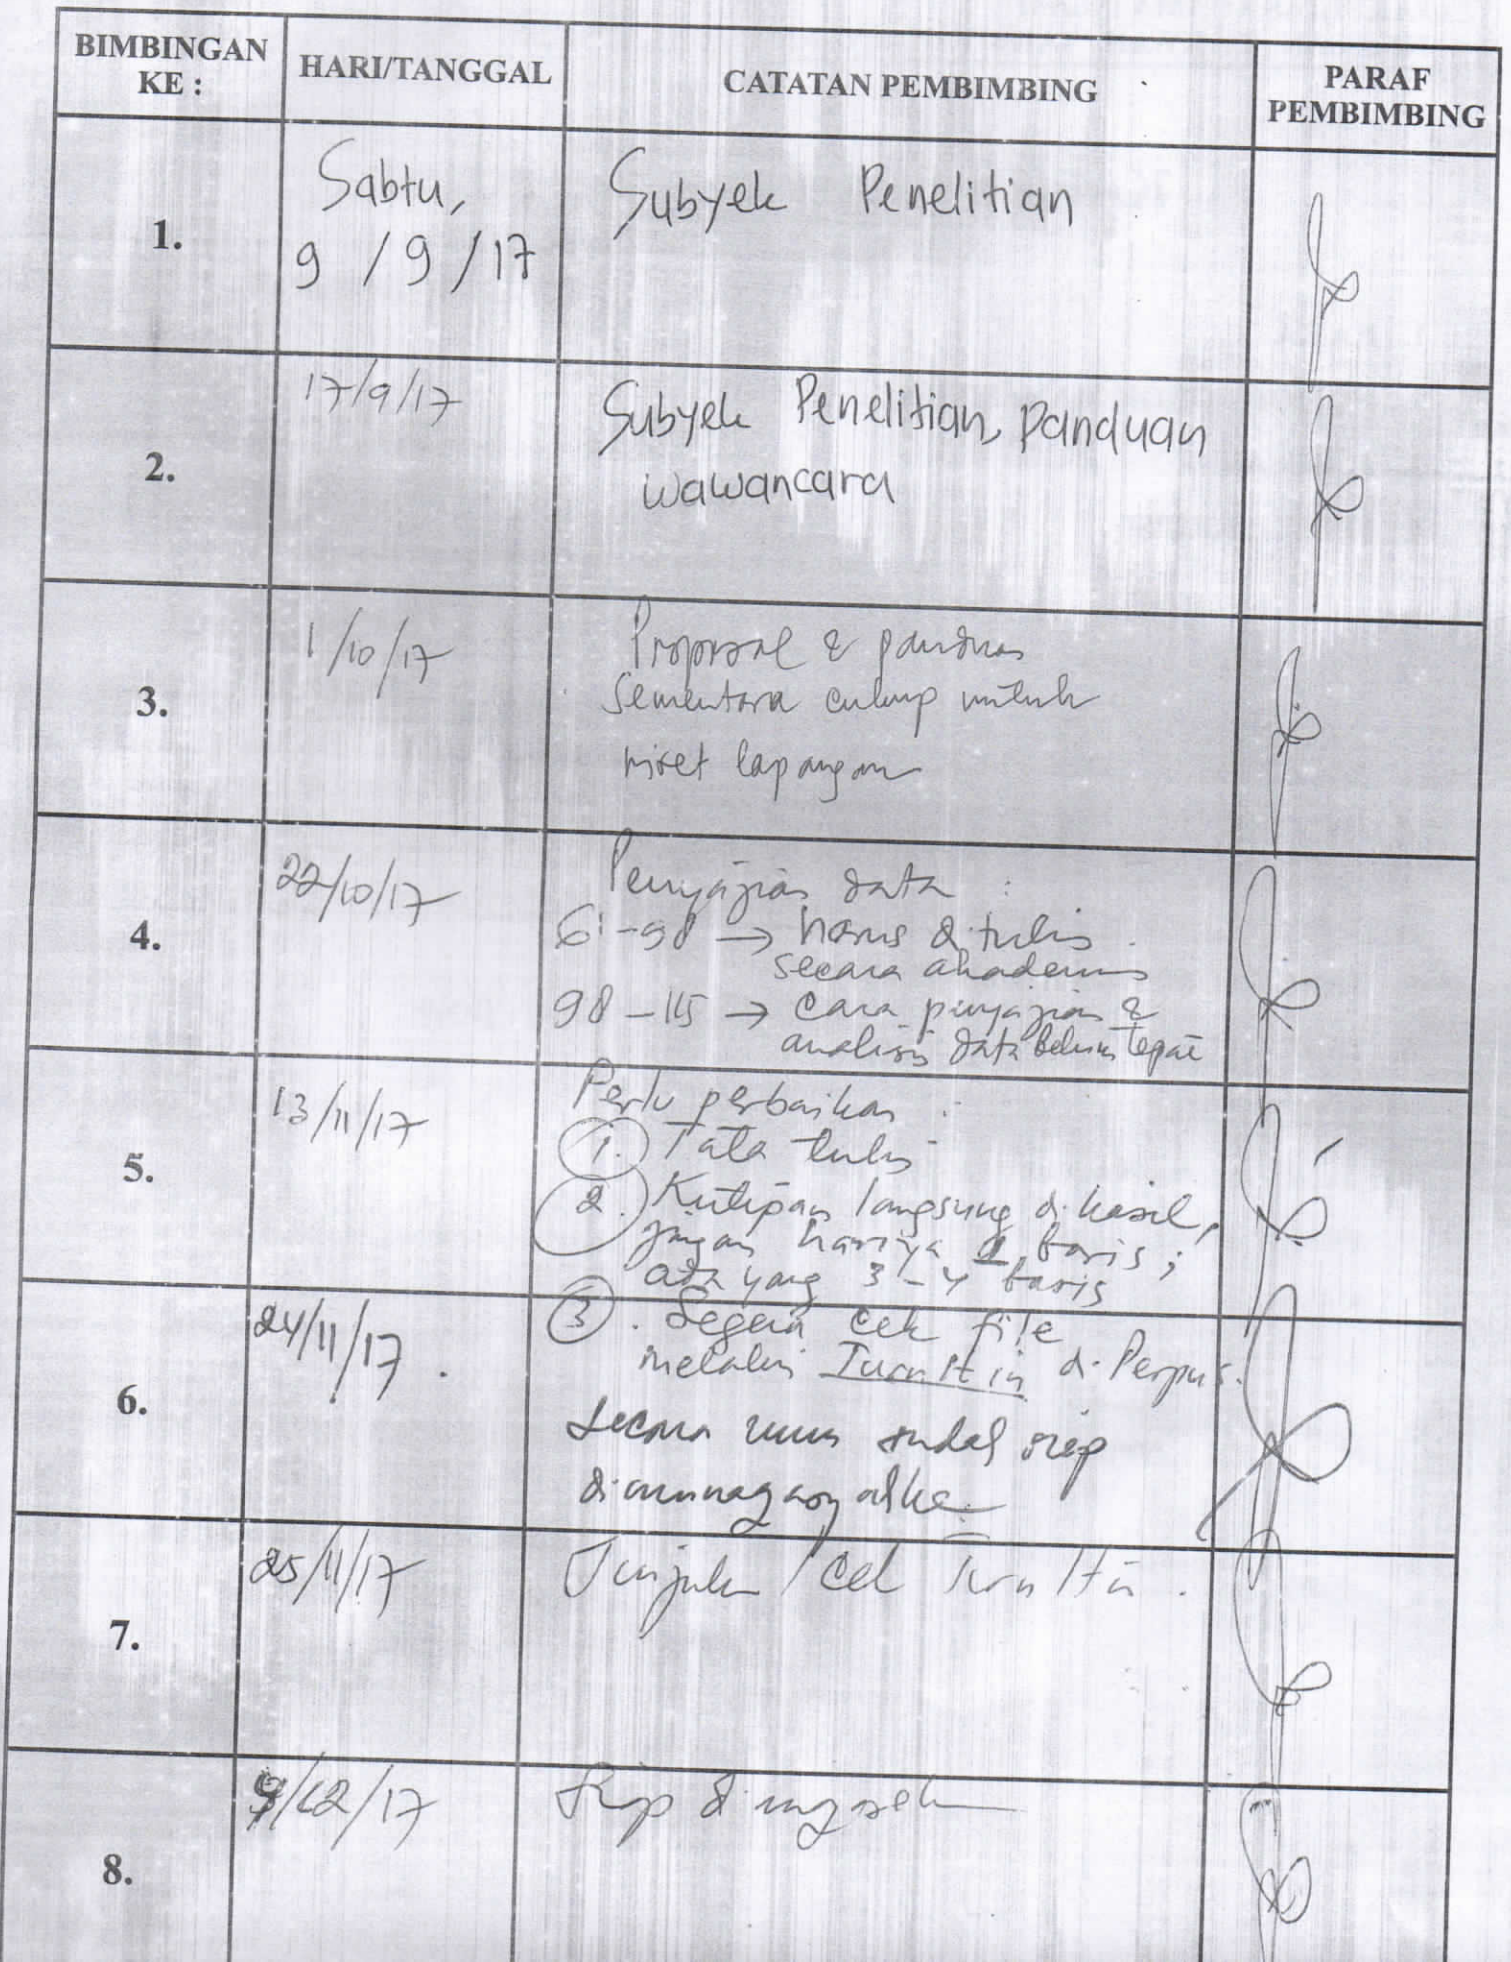 BIMBINGAN KE :
HARI/TANGGAL
CATATAN PEMBIMBING
PARAF PEMBIMBING
1.
Sabtu,
9 / 9 / 17
Subyek Penelitian
2.
17/9/17
Subyek Penelitian, Panduan
wawancara
3.
1/10/17
Proposal & panduan
sementara cukup untuk
riset lapangan
4.
22/10/17
Penyajian data :
61-98 → harus ditulis
secara akademis
98 - 115 → cara penyajian &
analisis data belum tepat
5.
13/11/17
Perlu perbaikan :
1. Tata tulis
2. Kutipan langsung di hasil,
jangan hanya baris ;
ada yang 3 - 4 baris
3. Segera cek file
melalui Turnitin di Perpus.
6.
24/11/17.
Secara umum sudah siap
dimunaqasyahkan
7.
25/11/17
cek Turnitin.
8.
/12/17
Siap